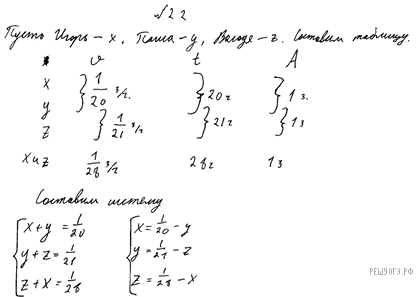 №22
Пусть Игорь – x, Паша – y, Володе – z. Составим таблицу.
v t A
x
y
z
1/20 з/ч. 20ч 1з.
1/21 з/ч 21ч 1з
x и z 1/28 з/ч 28ч 1з
Составим систему
x+y = 1/20 x = 1/20 - y
y+z = 1/21 y = 1/21 - z
z+x = 1/28 z = 1/28 - x
РЕШУОГЭ.РФ